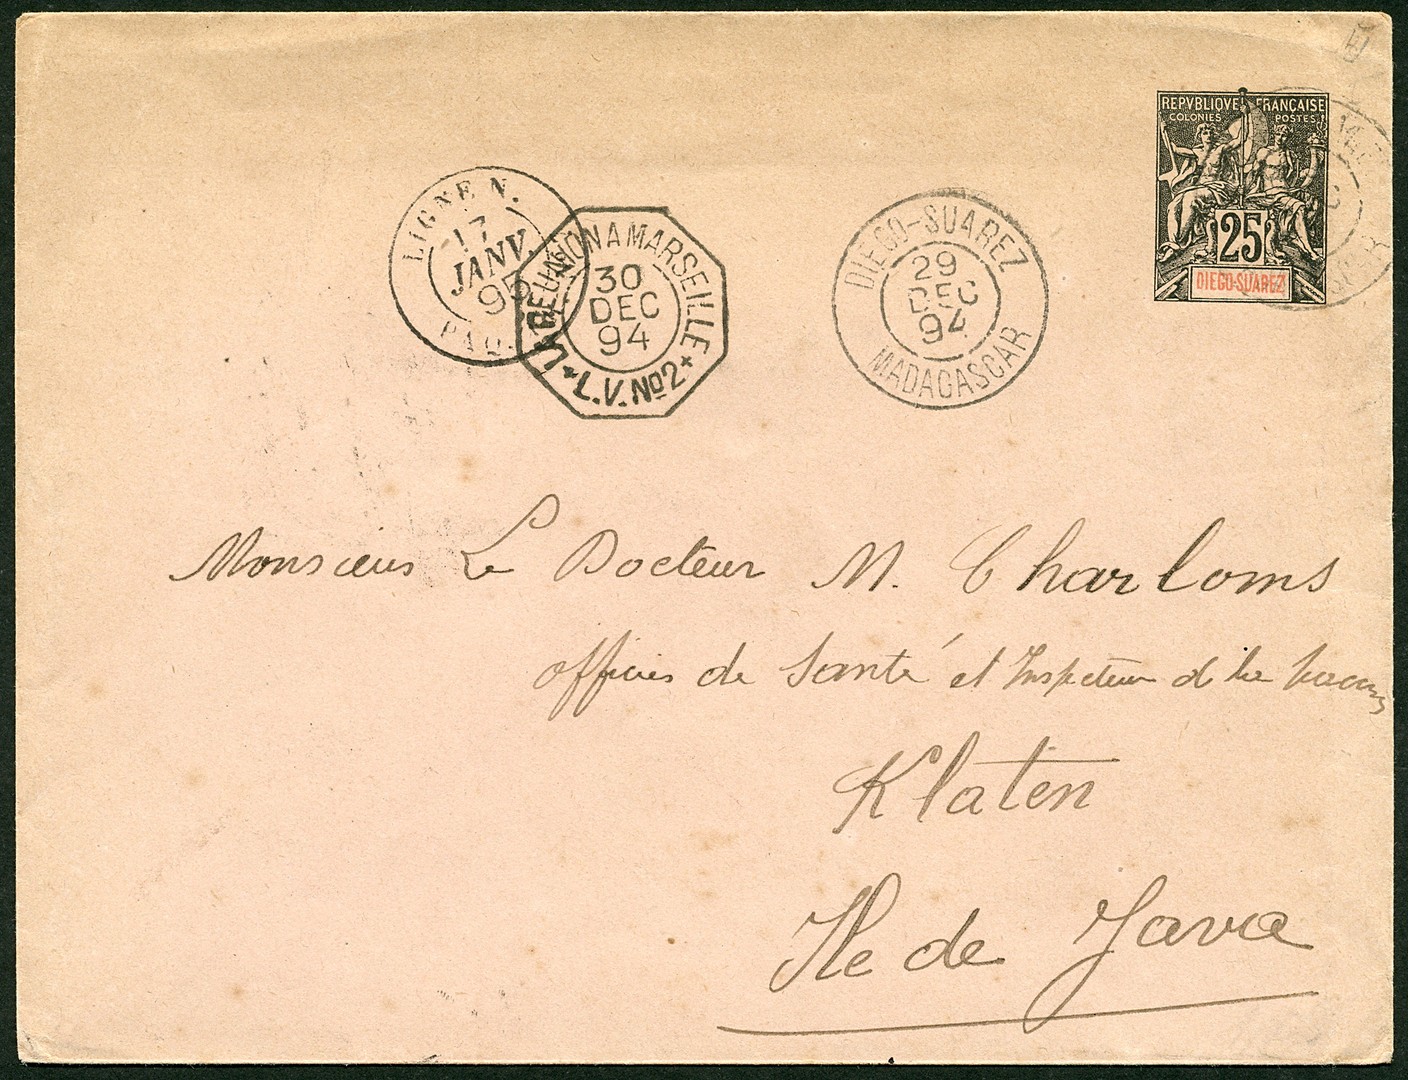 REPVBLIQVE FRANÇAISE
COLONIES POSTES
25
DIEGO-SUAREZ
LIGNE N.
17
JANV.
95
PAQ.
LA REUNION A MARSEILLE
30
DEC
94
L.V. No 2
DIEGO-SUAREZ
29
DEC
94
MADAGASCAR
Monsieur Le Docteur M. Charloms
officier de Santé et Inspecteur d
Klaten
Ile de Java